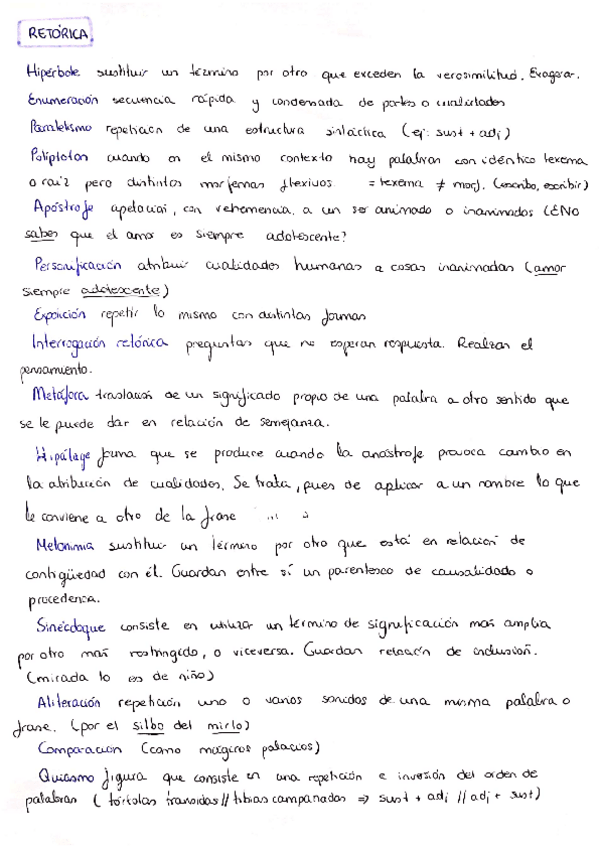 RETÓRICA
Hipérbole sustituir un término por otro que exceden la verosimilitud. Exagerar.
Enumeración secuencia rápida y condensada de partes o cualidades
Paralelismo repetición de una estructura sintáctica (ej: sust + adj)
Poliptoton cuando en el mismo contexto hay palabras con idéntico lexema
o raíz pero distintos morfemas flexivos = lexema ≠ morf. (escribo, escribir)
Apóstrofe apelación, con vehemencia, a un ser animado o inanimados (¿No
sabes que el amor es siempre adolescente?
Personificación atribuir cualidades humanas a cosas inanimadas (amor
siempre adolescente)
Expoición repetir lo mismo con distintas formas
Interrogación retórica preguntas que no esperan respuesta. Realzan el
pensamiento.
Metáfora traslación de un significado propio de una palabra a otro sentido que
se le puede dar en relación de semejanza.
Hipálage forma que se produce cuando la anástrofe provoca cambio en
la atribución de cualidades. Se trata, pues de aplicar a un nombre lo que
le conviene a otro de la frase
Metonimia sustituir un término por otro que está en relación de
contigüedad con él. Guardan entre sí un parentesco de causalidad o
procedencia.
Sinécdoque consiste en utilizar un término de significación más amplia
por otro más restringido, o viceversa. Guardan relación de inclusión.
(mirada lo es de niño)
Aliteración repetición uno o varios sonidos de una misma palabra o
frase. (por el silbo del mirlo)
Comparación (como mágicos palacios)
Quiasmo figura que consiste en una repetición e inversión del orden de
palabras ( tórtolas transidas // tibias campanadas ⇒ sust + adj // adj + sust)